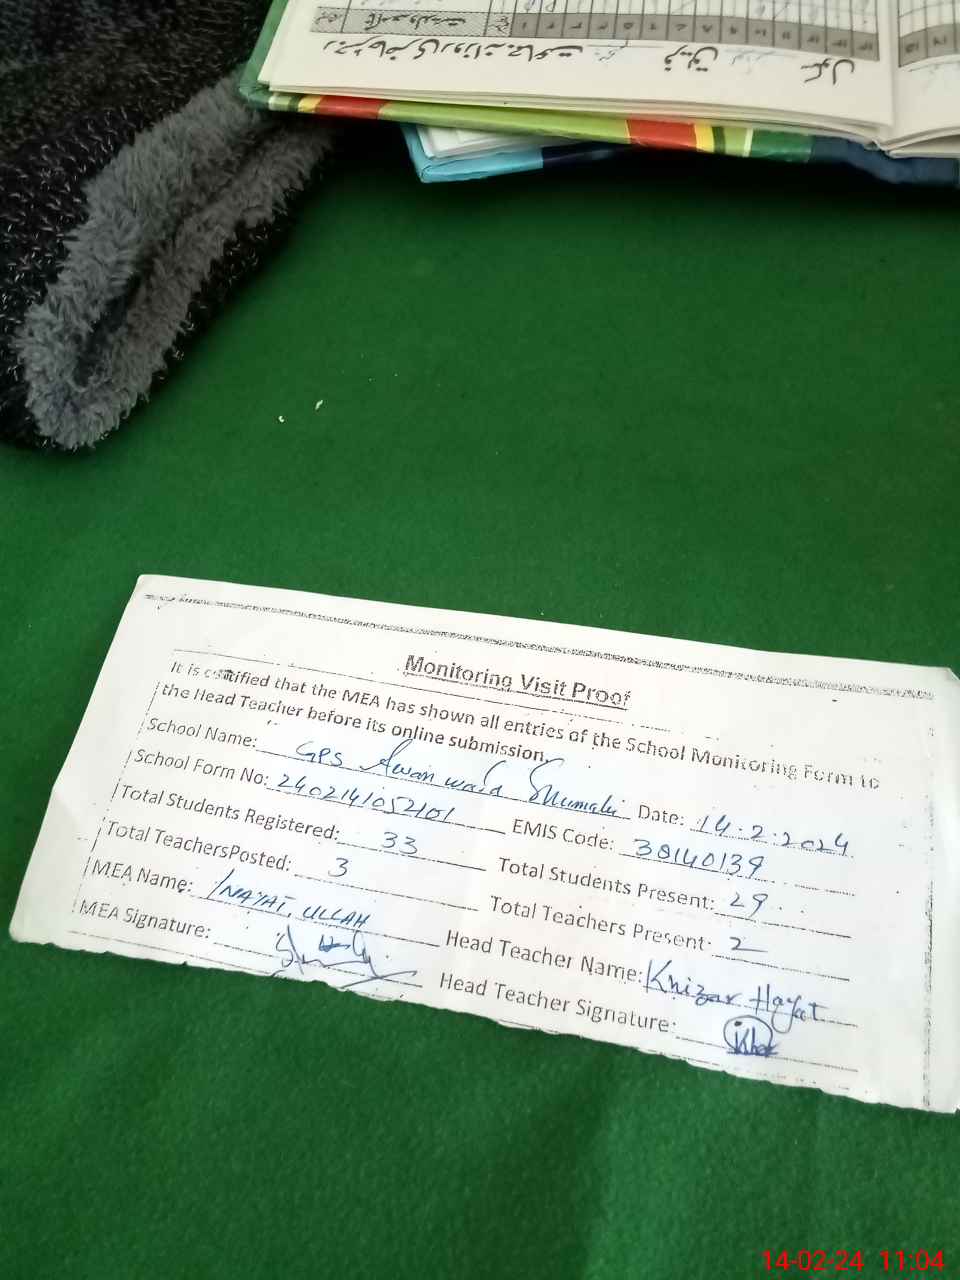 Monitoring Visit Proof
It is certified that the MEA has shown all entries of the School Monitoring Form to
the Head Teacher before its online submission.
School Name: GPS Awan ward Shumali Date: 14.2.2024
School Form No: 2402141052101 EMIS Code: 38140139
Total Students Registered: 33 Total Students Present: 29
Total TeachersPosted: 3 Total Teachers Present: 2
MEA Name: INAYAT ULLAH Head Teacher Name: Khizar Hayat
MEA Signature: Head Teacher Signature: Khar
14-02-24 11:04